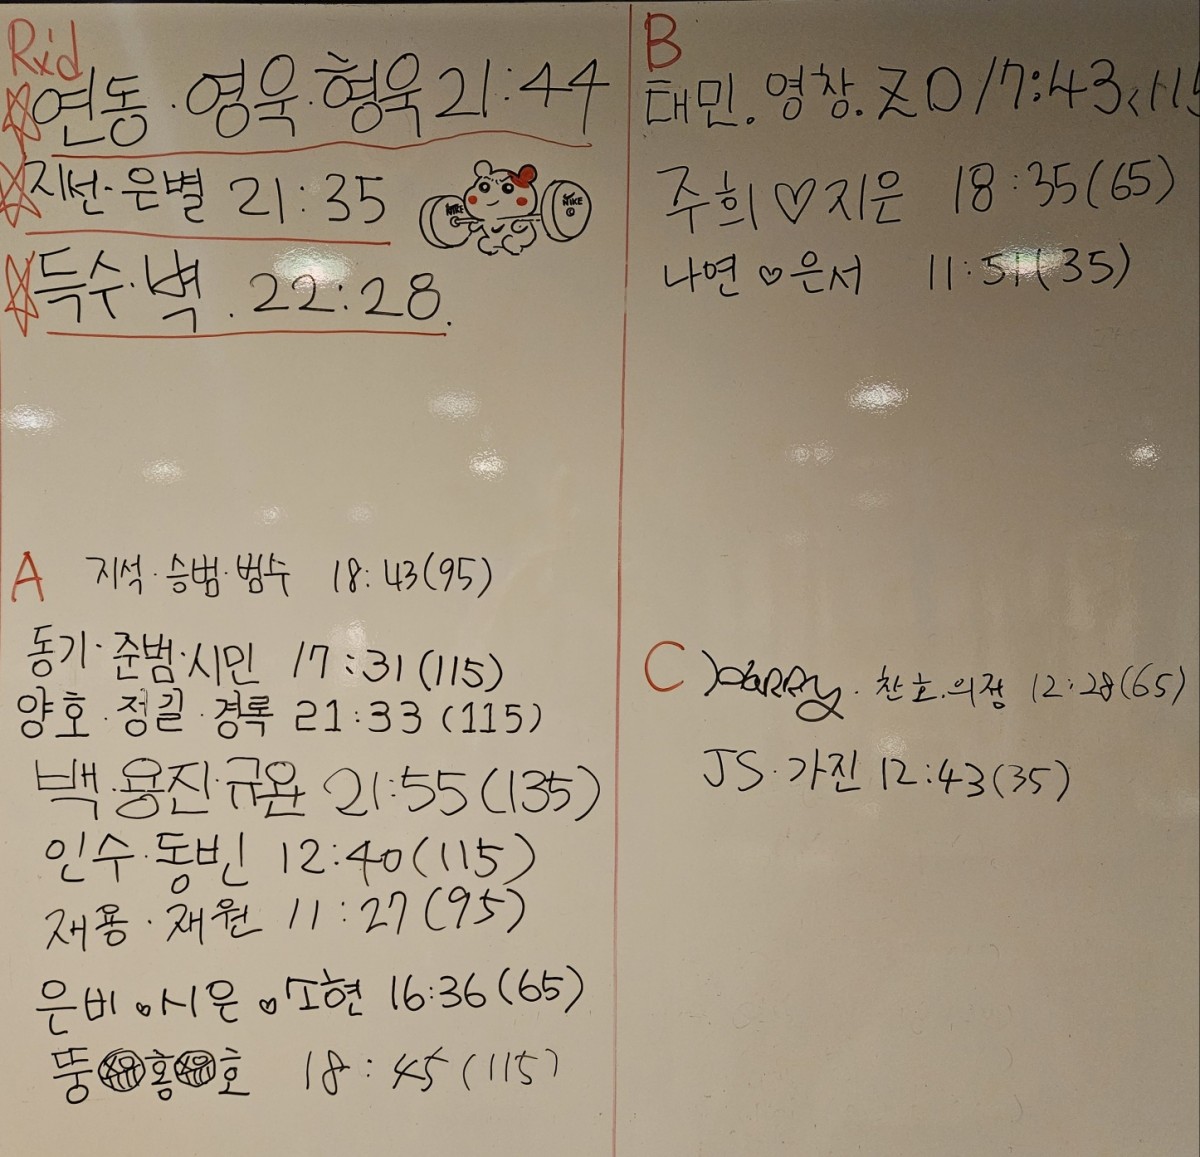 Rxd
연동·영욱·형욱 21:44
지선·은별 21:35
NIKE
NIKE
득수·벽. 22:28.
A 지석·승범·범수 18:43(95)
동기·준범·시민 17:31(115)
양호·정길·경록 21:33(115)
백·용진·규완 21:55(135)
인수·동빈 12:40(115)
재용·재원 11:27(95)
은비♡시은♡소현 16:36(65)
뚱 홍 호 18:45(115)
B
태민.영창.ZD 17:43(115
주희♡지은 18:35(65)
나연♡은서 11:51(35)
C HARRY·찬호.의정 12:28(65)
JS·가진 12:43(35)